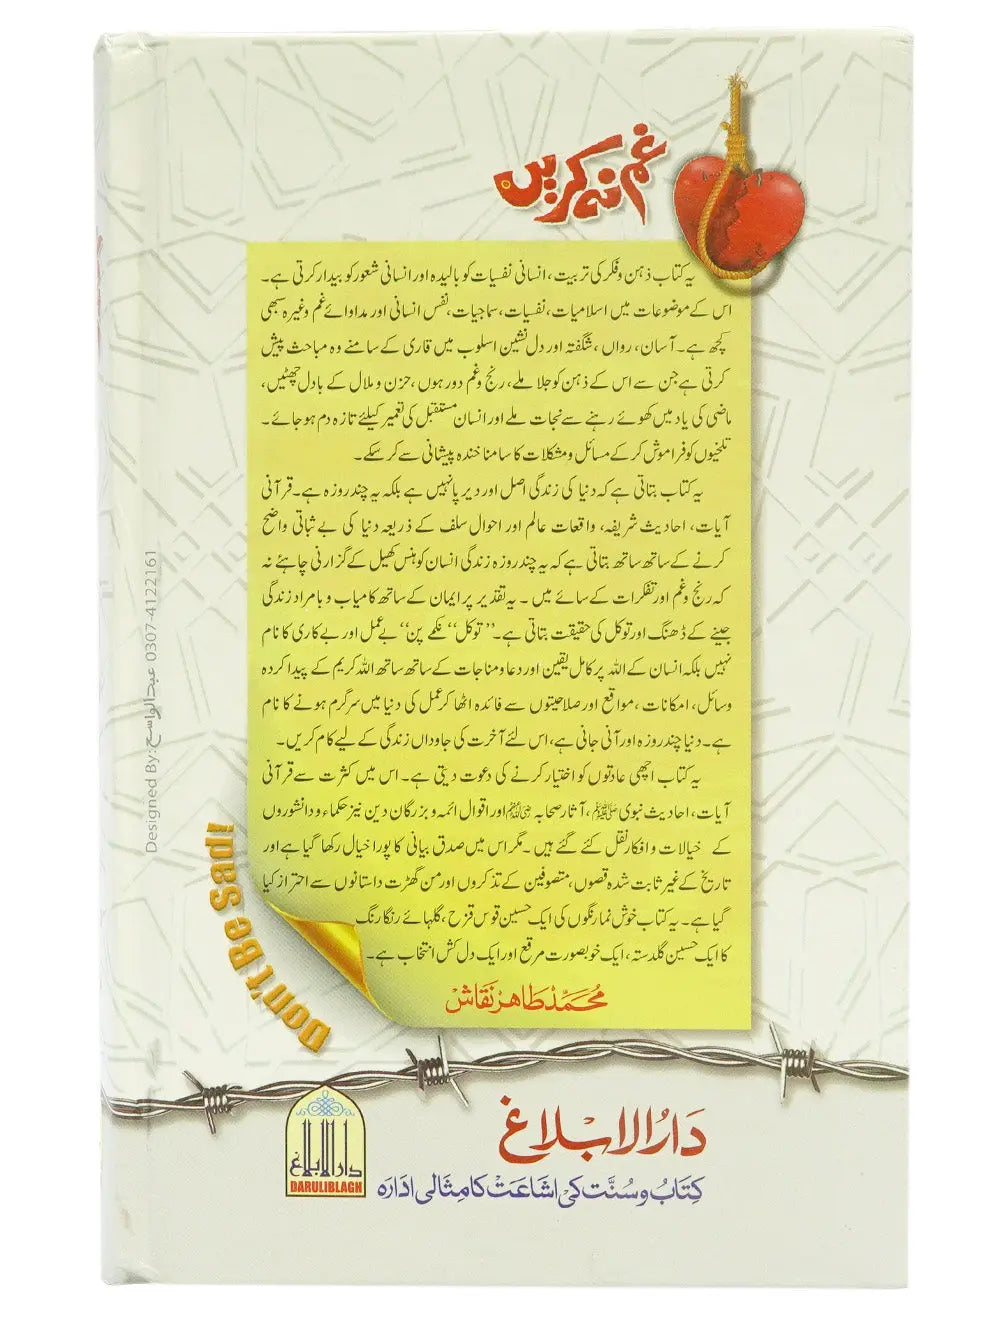 غم نہ کریں
یہ کتاب ذہن و فکر کی تربیت، انسانی نفسیات کو بالیدہ اور انسانی شعور کو بیدار کرتی ہے۔
اس کے موضوعات میں اسلامیات، نفسیات، سماجیات، نفس انسانی اور مداوائے غم وغیرہ سبھی
کچھ ہے۔ آسان، رواں، شگفتہ اور دل نشین اسلوب میں قاری کے سامنے وہ مباحث پیش
کرتی ہے جن سے اس کے ذہن کو جلا ملے، رنج و غم دور ہوں، حزن و ملال کے بادل چھٹیں،
ماضی کی یاد میں کھوئے رہنے سے نجات ملے اور انسان مستقبل کی تعمیر کیلئے تازہ دم ہو جائے۔
تلخیوں کو فراموش کر کے مسائل و مشکلات کا سامنا خندہ پیشانی سے کر سکے۔
یہ کتاب بتاتی ہے کہ دنیا کی زندگی اصل اور دیرپا نہیں ہے بلکہ یہ چند روزہ ہے۔ قرآنی
آیات، احادیث شریفہ، واقعات عالم اور احوال سلف کے ذریعہ دنیا کی بے ثباتی واضح
کرنے کے ساتھ ساتھ بتاتی ہے کہ یہ چند روزہ زندگی انسان کو ہنس کھیل کے گزارنی چاہئے نہ
کہ رنج و غم اور تفکرات کے سائے میں۔ یہ تقدیر پر ایمان کے ساتھ کامیاب و بامراد زندگی
جینے کے ڈھنگ اور توکل کی حقیقت بتاتی ہے۔ ’’توکل‘‘ ’’نکمے پن‘‘ بے عمل اور بے کاری کا نام
نہیں بلکہ انسان کے اللہ پر کامل یقین اور دعا و مناجات کے ساتھ ساتھ اللہ کریم کے پیدا کردہ
وسائل، امکانات، مواقع اور صلاحیتوں سے فائدہ اٹھا کر عمل کی دنیا میں سرگرم ہونے کا نام
ہے۔ دنیا چند روزہ اور آنی جانی ہے، اس لئے آخرت کی جاوداں زندگی کے لیے کام کریں۔
یہ کتاب اچھی عادتوں کو اختیار کرنے کی دعوت دیتی ہے۔ اس میں کثرت سے قرآنی
آیات، احادیث نبوی ﷺ، آثار صحابہ اور اقوال ائمہ و بزرگان دین نیز حکماء و دانشوروں
کے خیالات و افکار نقل کئے گئے ہیں۔ مگر اس میں صدق بیانی کا پورا خیال رکھا گیا ہے اور
تاریخ کے غیر ثابت شدہ قصوں، متصوفین کے تذکروں اور من گھڑت داستانوں سے احتراز کیا
گیا ہے۔ یہ کتاب خوش نما رنگوں کی ایک حسین قوس قزح، گلہائے رنگا رنگ
کا ایک حسین گلدستہ، ایک خوبصورت مرقع اور ایک دل کش انتخاب ہے۔
محمد طاہر نقاش
Don't Be Sad!
Designed By: عبدالواسع 0307-4122161
دارالابلاغ
DARULIBLAGH
دارالابلاغ
کتاب و سنت کی اشاعت کا مثالی ادارہ